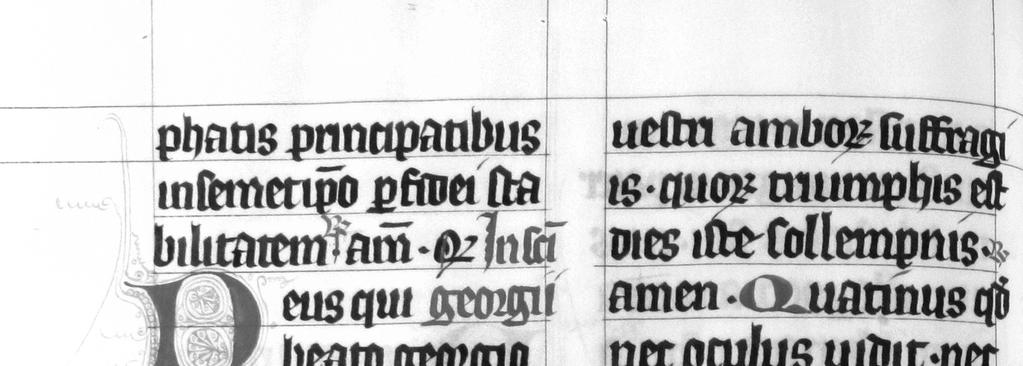 phatis principatibus
insemetip̄o ꝑfidei sta
bilitatem am̄ · Qꝛ In sc̄i
Deus qui georgii
beato georgio
uestri amboꝝ suffragi
is · quoꝝ triumphis est
dies iste sollempnis ·
amen · Quatinus qd̄
nec oculus uidit · nec